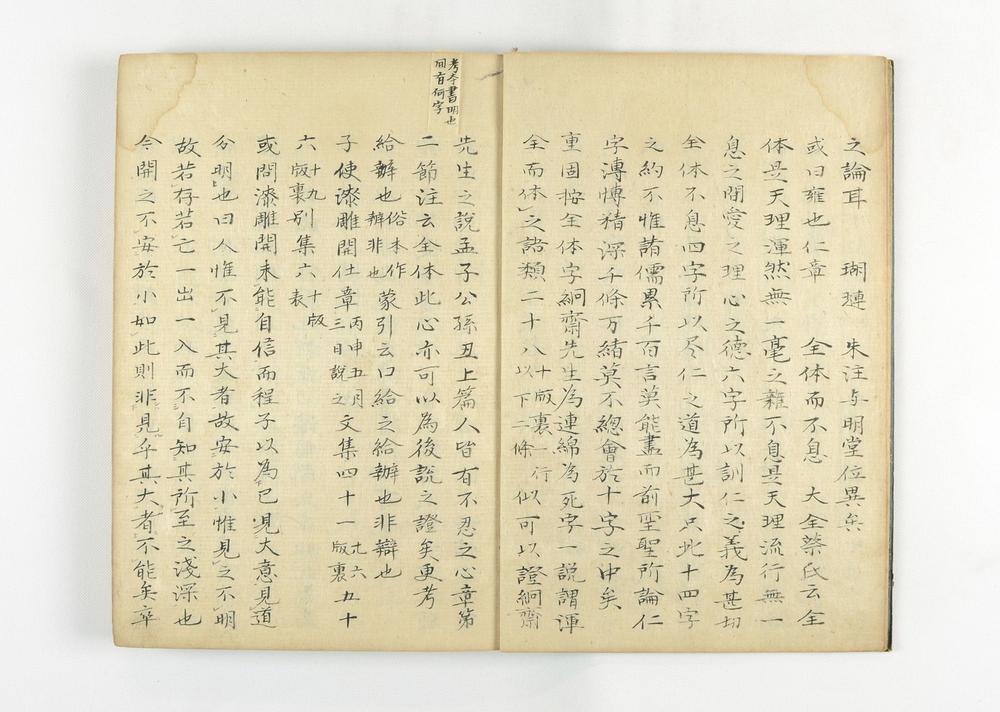 之論耳 瑚璉 朱注与明堂位異矣
或曰雍也仁章 全体而不息 大全蔡氏云全
体是天理渾然無一毫之雜不息是天理流行無一
息之間愛之理心之德六字所以訓仁之義為甚切
全体不息四字所以尽仁之道為甚大只此十四字
之約不惟諸儒累千百言莫能盡而前聖聖所論仁
字溥博精深千條万緒莫不總會於十字之中矣
重固按全体字絅齋先生為連綿為死字一説謂渾
全而体之諸類二十八十版裏一行以下二條似可以證絅齋
考本書明也
間有何字
先生之説孟子公孫丑上篇人皆有不忍之心章第
二節注云全体此心亦可以為後説之證矣更考
給辦也俗本作辦非也蒙引云口給之給辦也非辯也
子使漆雕開仕章丙申五月三日説之文集四十一九六版裏五十
六十九版裏別集六十版表
或問漆雕開未能自信而程子以為已見大意見道
分明也曰人惟不見其大者故安於小惟見之不明
故若存若亡一出一入而不自知其所至之淺深也
今開之不安於小如此則非見乎其大者不能矣卒